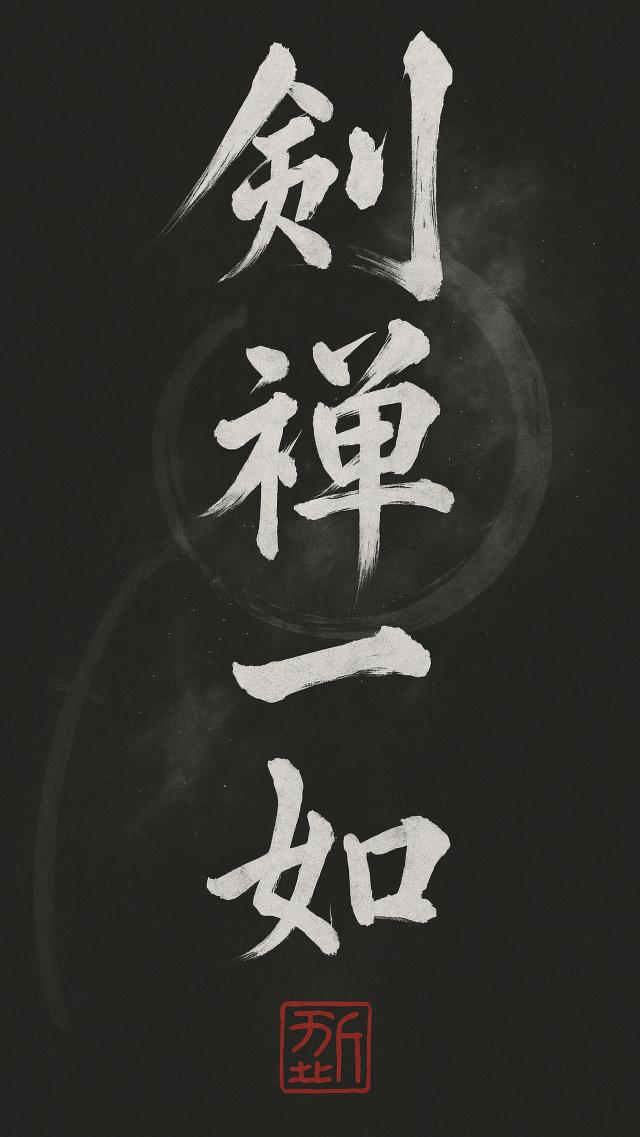 剣禅一如